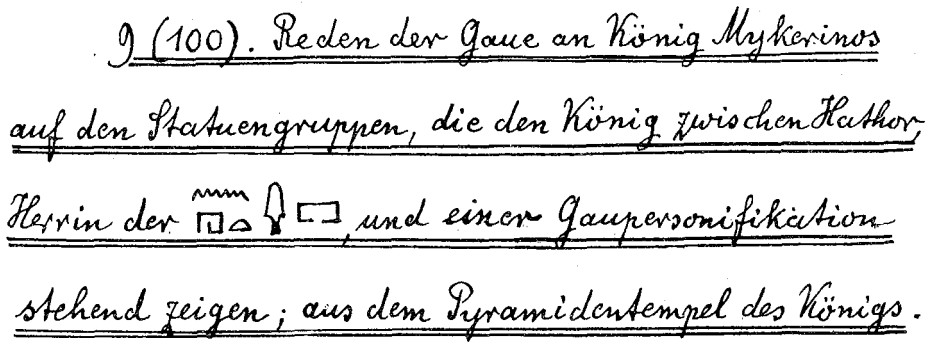 9 (100). Reden der Gaue an König Mykerinos
auf den Statuengruppen, die den König zwischen Hathor,
Herrin der 𓈖𓉔𓏏𓇋𓈅, und einer Gaupersonifikation
stehend zeigen; aus dem Pyramidentempel des Königs.